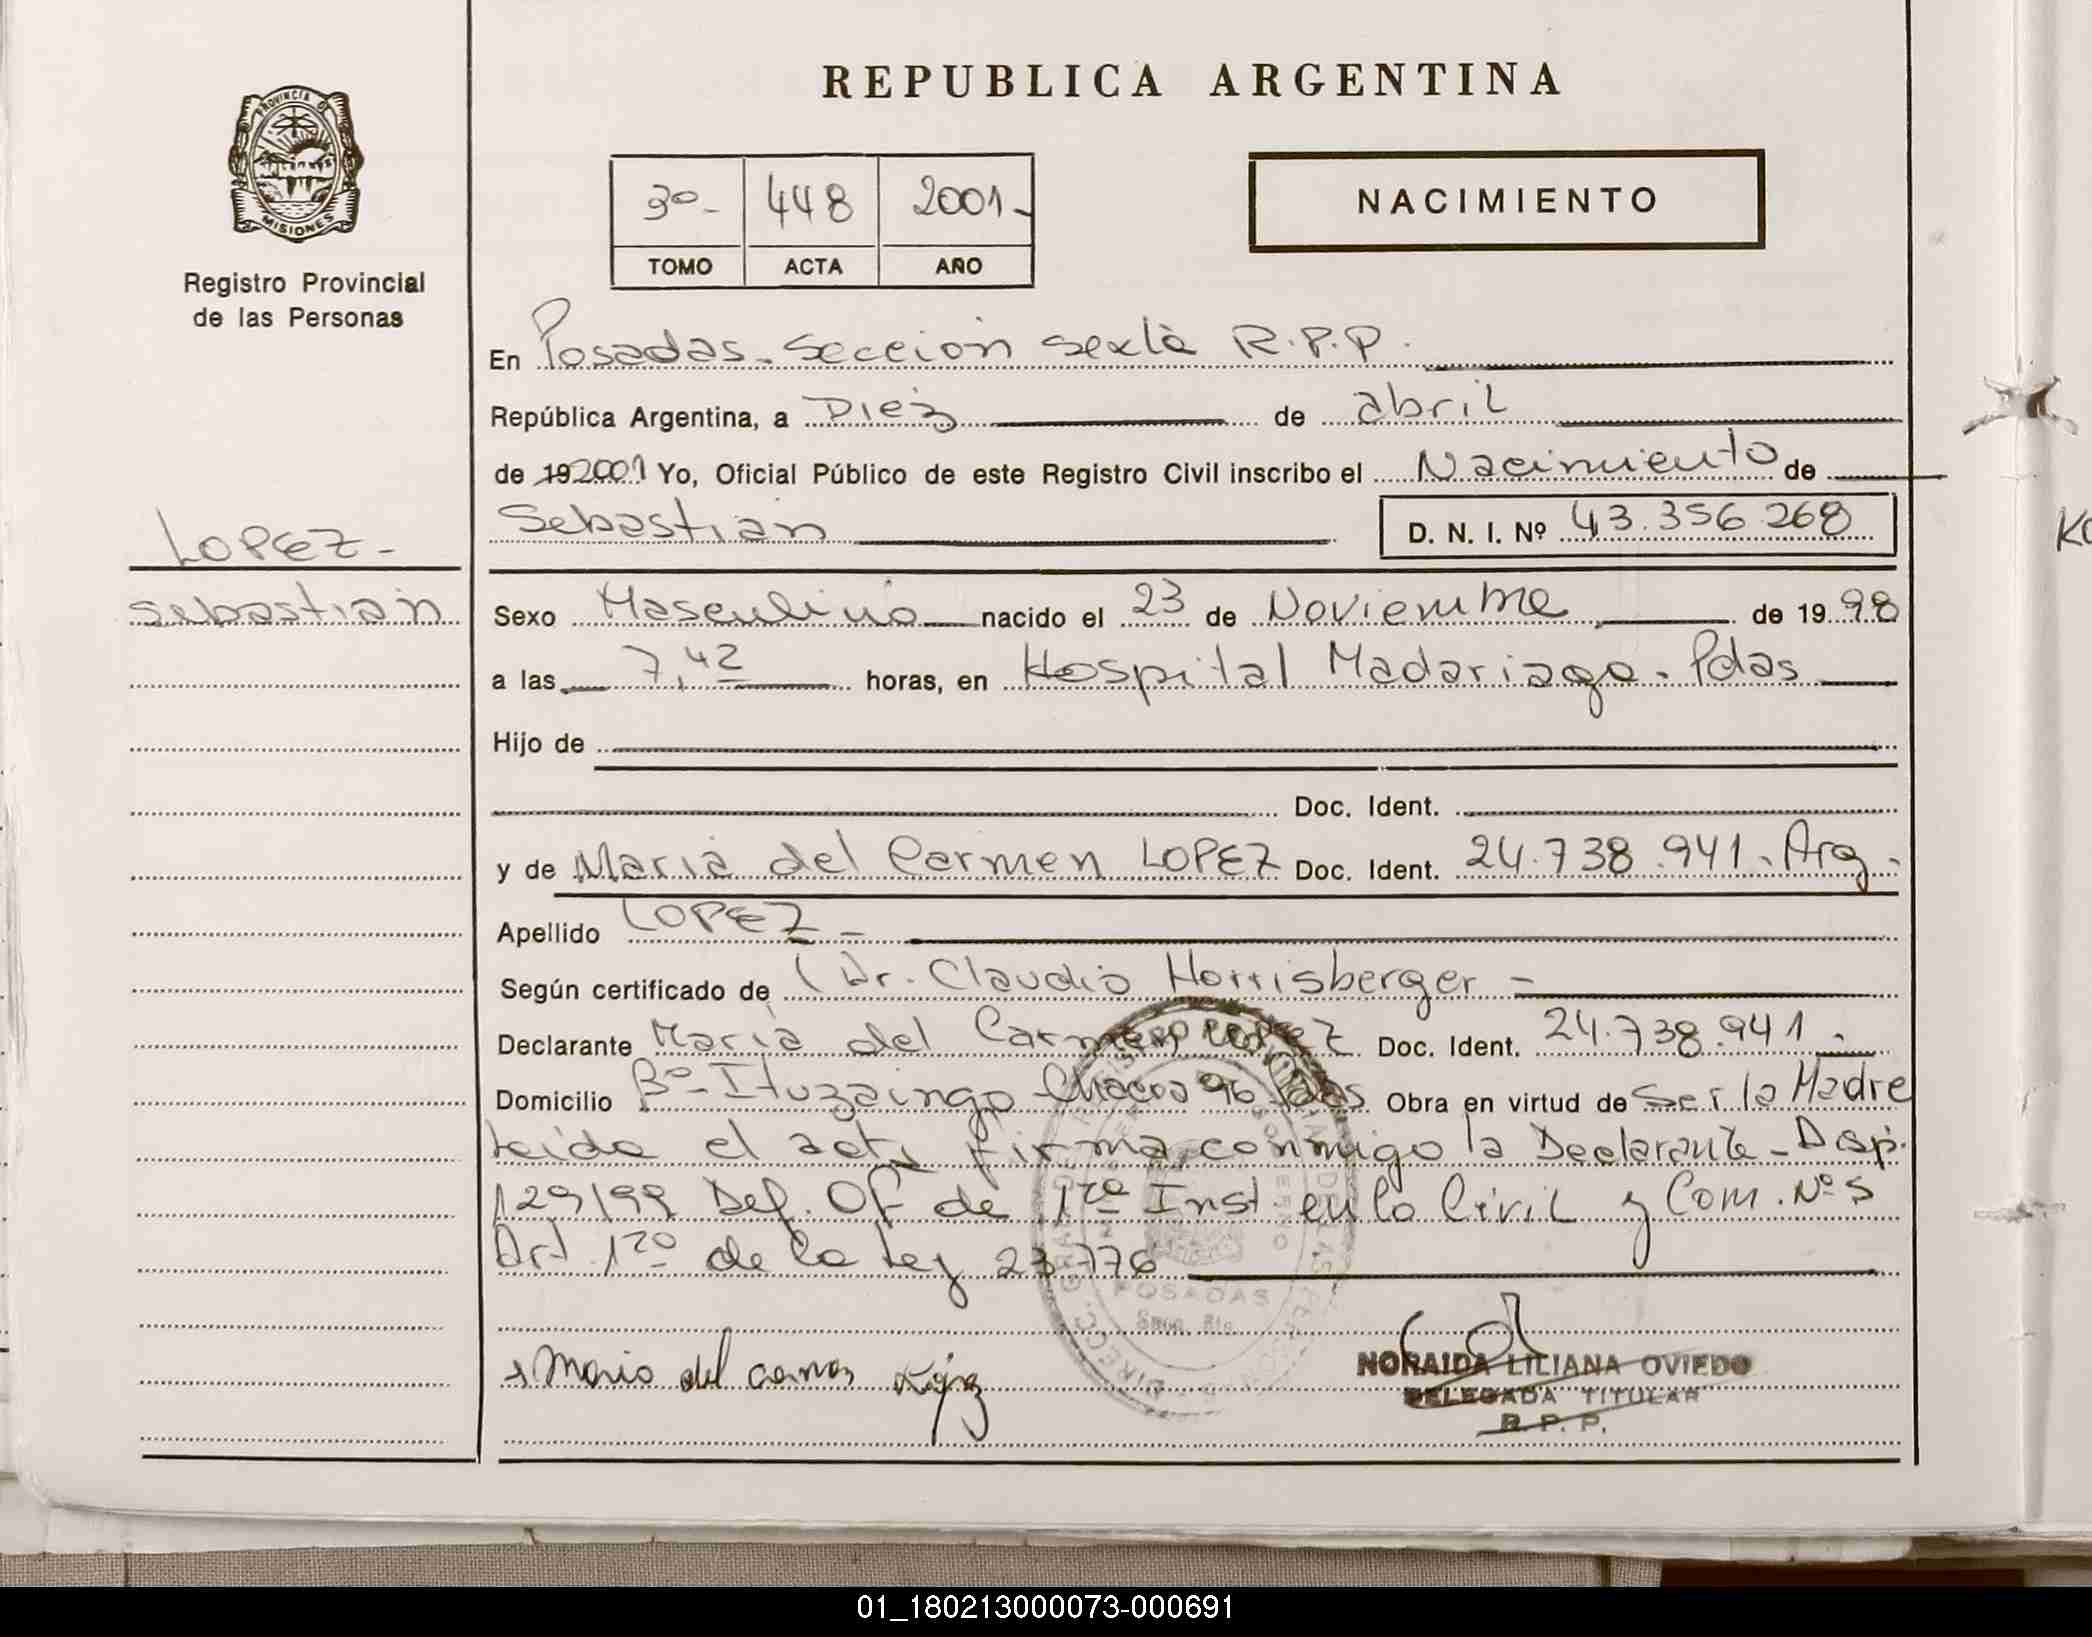 REPUBLICA ARGENTINA
PROVINCIA D
MISIONES
Registro Provincial
de las Personas
3º - 448 2001 -
TOMO ACTA AÑO
NACIMIENTO
En Posadas - Sección sexta R.P.P.
República Argentina, a Diez de abril
de 19 2001 Yo, Oficial Público de este Registro Civil inscribo el Nacimiento de
Sebastian D. N. I. Nº 43.356.268
LOPEZ -
Sebastian
Sexo Masculino nacido el 23 de Noviembre de 19 98
a las 7,42 horas, en Hospital Madariaga - Pdas
Hijo de
Doc. Ident.
y de Maria del Carmen LOPEZ Doc. Ident. 24.738.941 - Arg.
Apellido LOPEZ -
Según certificado de (Dr. Claudio Horrisberger -
Declarante María del Carmen LOPEZ Doc. Ident. 24.738.941.
Domicilio Bº - Ituzaingo Chacra 96 Pdas Obra en virtud de Ser la Madre
Leida el acta firma conmigo la Declarante - Disp.
129/99 Def. Of de 1ra Inst. en lo Civil y Com. Nº 5
Art 1ro de la Ley 23.776
POSADAS
Maria del carmen López
NORAIDA LILIANA OVIEDO
DELEGADA TITULAR
R. P. P.
01_180213000073-000691